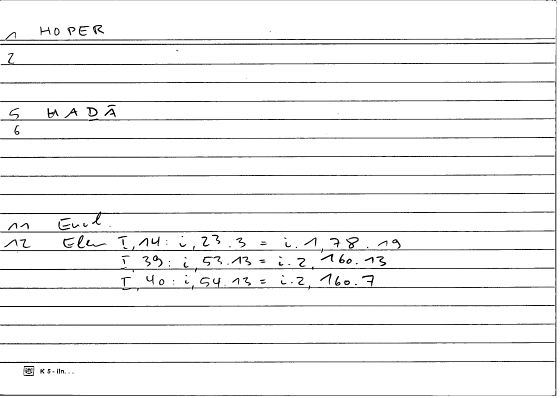 1 HOPER
2
5 HADĀ
6
11 Eucl.
12 Elem I, 14: i, 23.3 = i.1, 78.19
I, 39: i, 53.13 = i.2, 160.13
I, 40: i, 54.13 = i.2, 160.7
K 5 - lin. . .